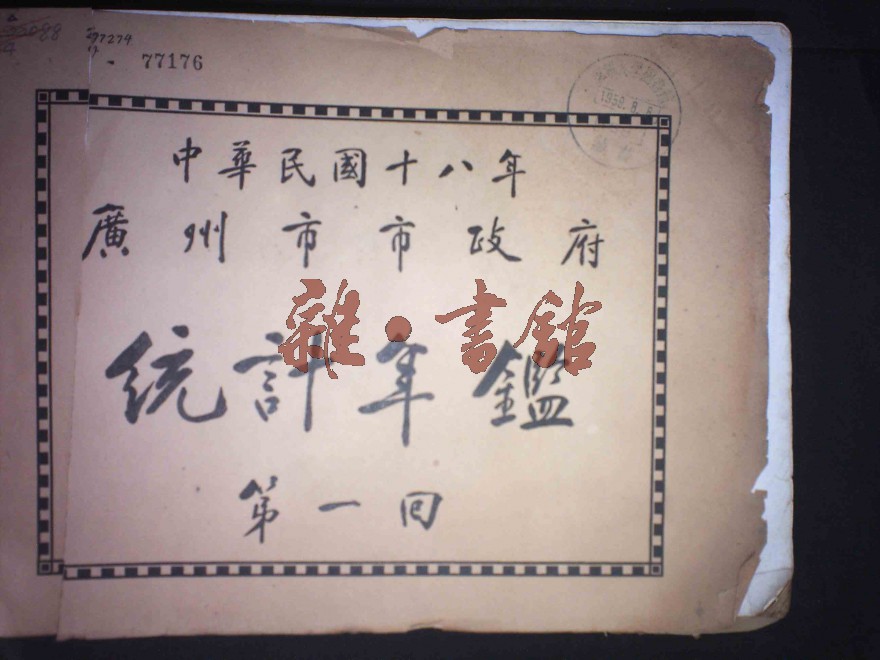 77279
77176
1958.8.6
中華民國十八年
廣州市市政府
雜·書館
統計年鑑
第一回